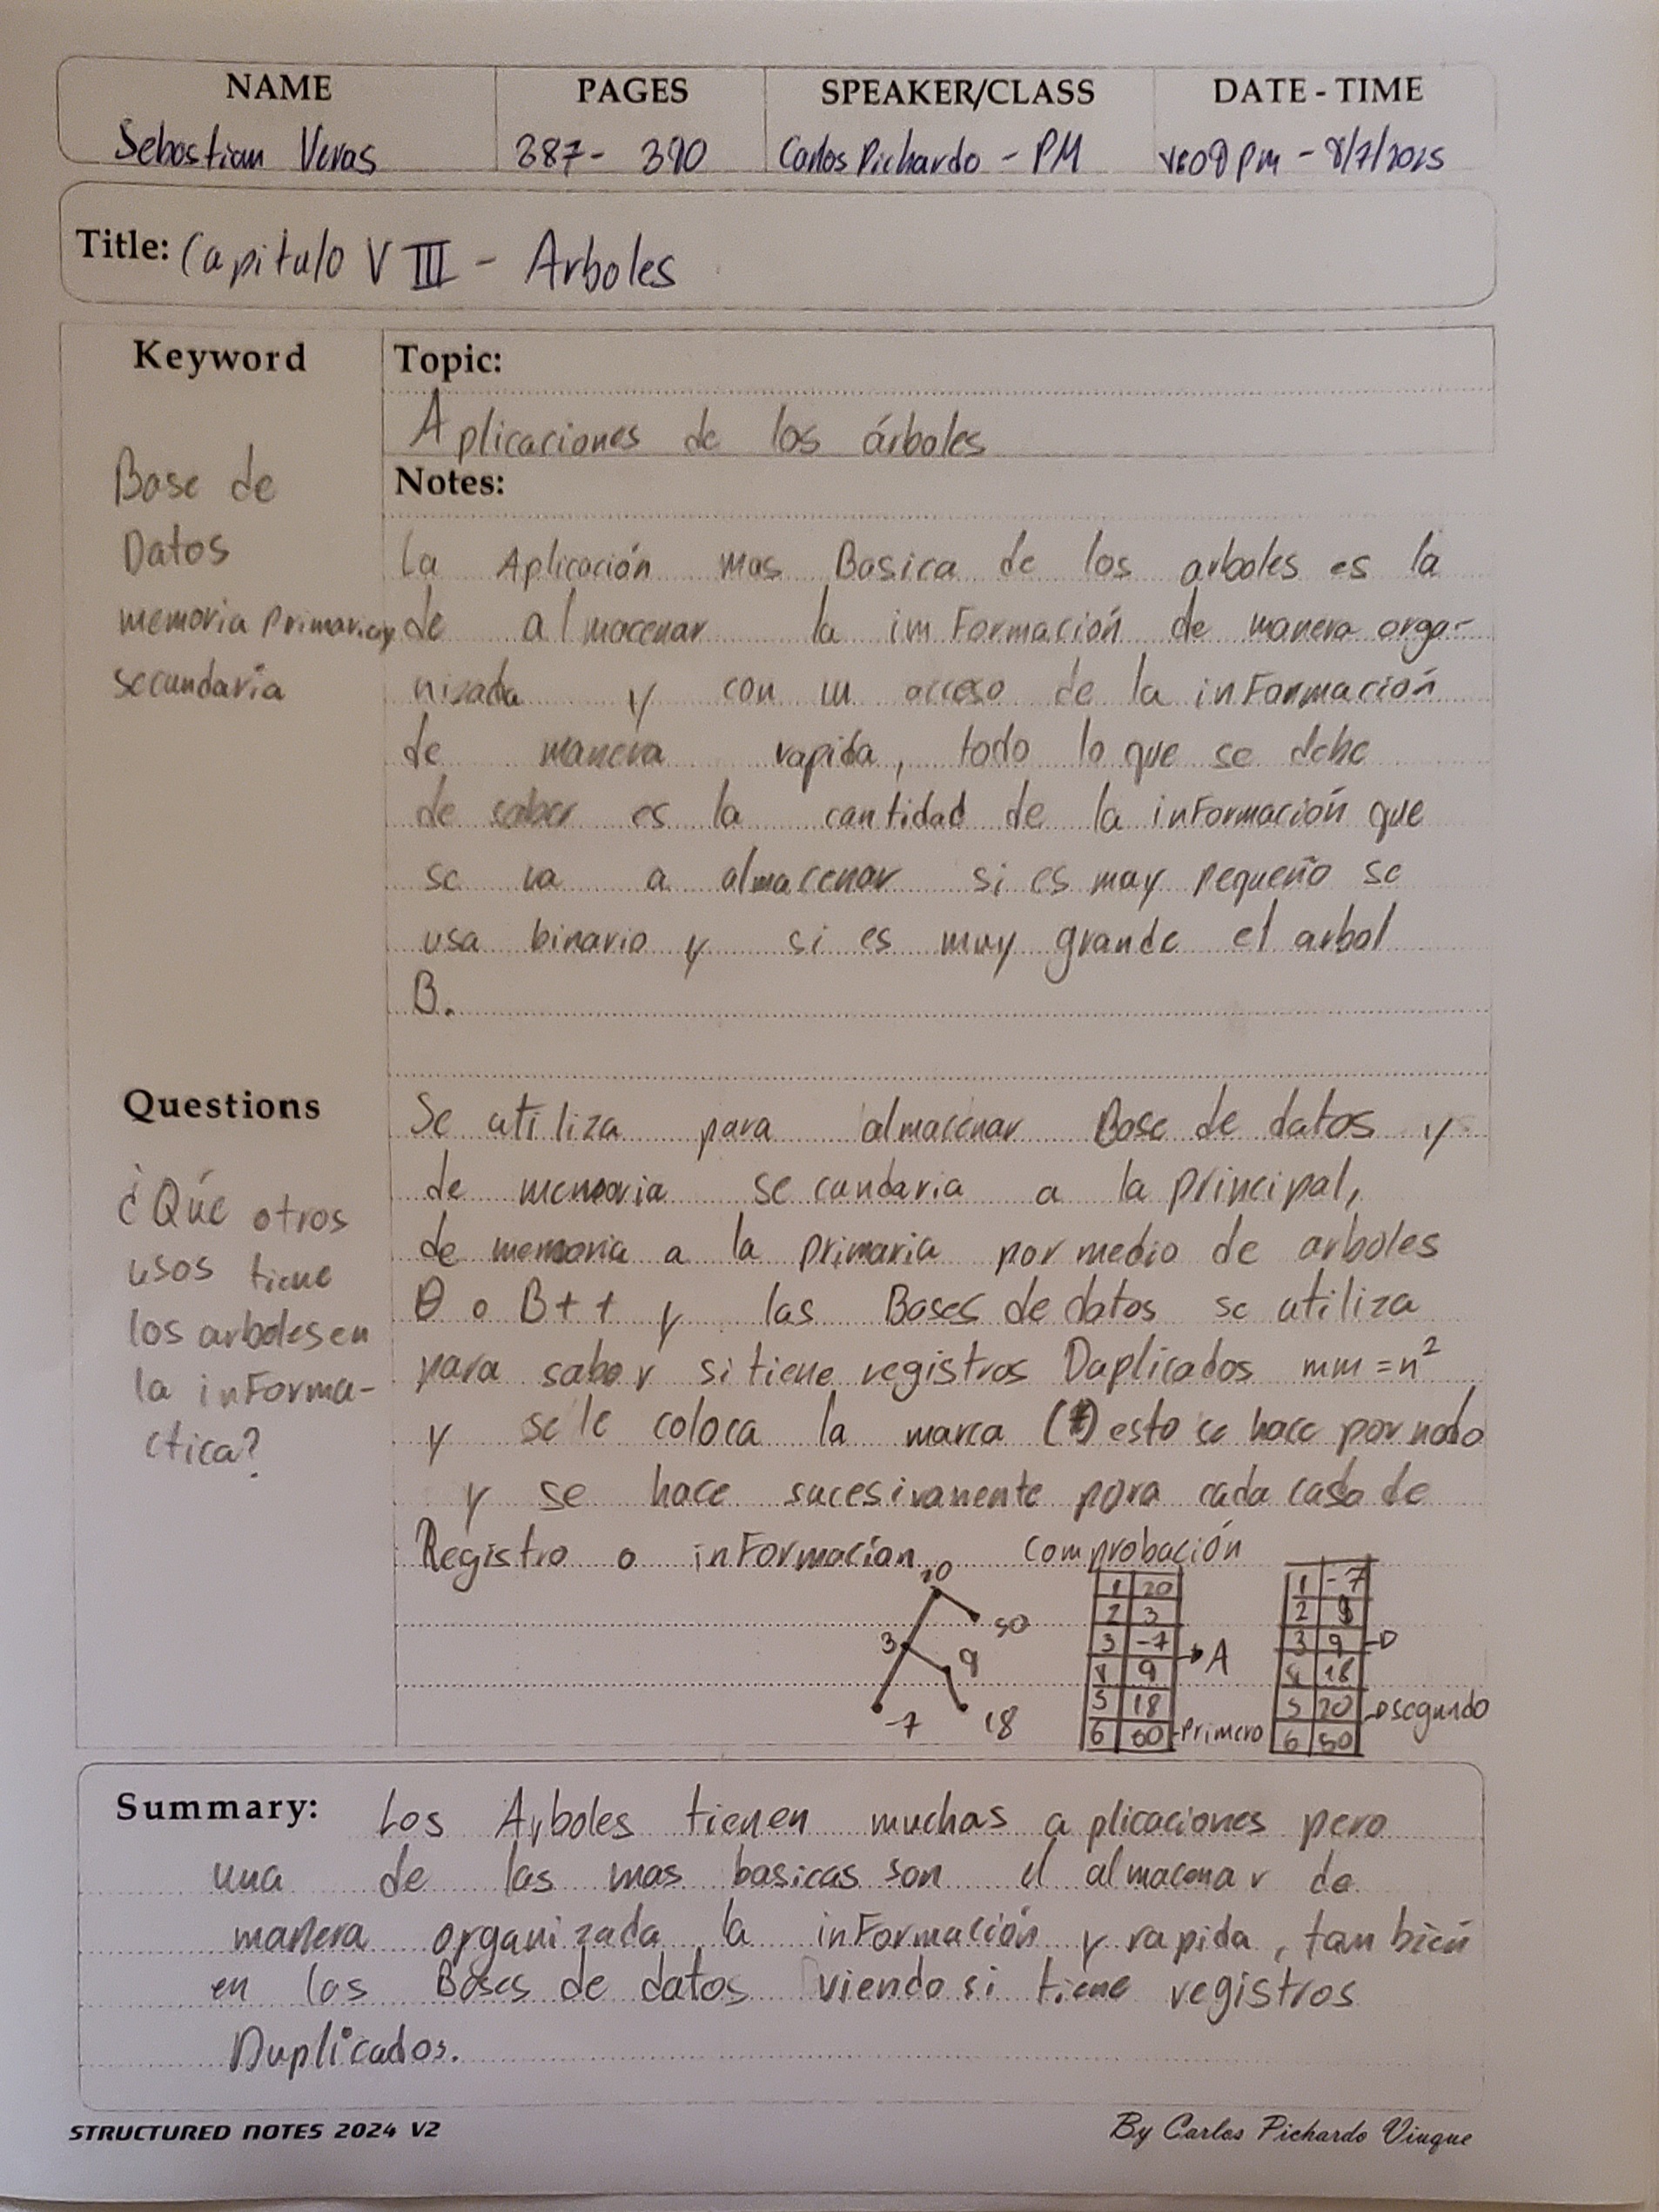 NAME PAGES SPEAKER/CLASS DATE - TIME
Sebastian Veras 387- 390 Carlos Pichardo - PM pm - 8/7/2025
Title: Capitulo VIII - Arboles
Keyword
Base de
Datos
memoria primaria y
secundaria
Topic:
Aplicaciones de los árboles
Notes:
La Aplicación mas Basica de los arboles es la
de almacenar la imformación de manera orga-
nizada y con un acceso de la información
de manera rapida, todo lo que se debe
de saber es la cantidad de la información que
se va a almacenar si es muy pequeño se
usa binario y si es muy grande el arbol
B.
Questions
¿Qué otros
usos tiene
los arboles en
la informa-
ctica?
Se utiliza para almacenar Base de datos y
de memoria secundaria a la principal,
de memoria a la primaria por medio de arboles
B o B++ y las Bases de datos se utiliza
para saber si tiene registros Duplicados mm = n²
y se le coloca la marca (*) esto se hace por nodo
y se hace sucesivamente para cada caso de
Registro o informacion. Comprobación
20
50
3
9
-7
18
1 20
2 3
3 -7
→ A
4 9
5 18
6 50 - Primero
1 -7
2
3 9 → D
4 18
5 20 → segundo
6 50
Summary: Los Arboles tienen muchas aplicaciones pero
una de las mas basicas son el almacenar de
manera organizada la información y rapida, también
en las Bases de datos viendo si tiene registros
Duplicados.
STRUCTURED NOTES 2024 V2
By Carlos Pichardo Viuque